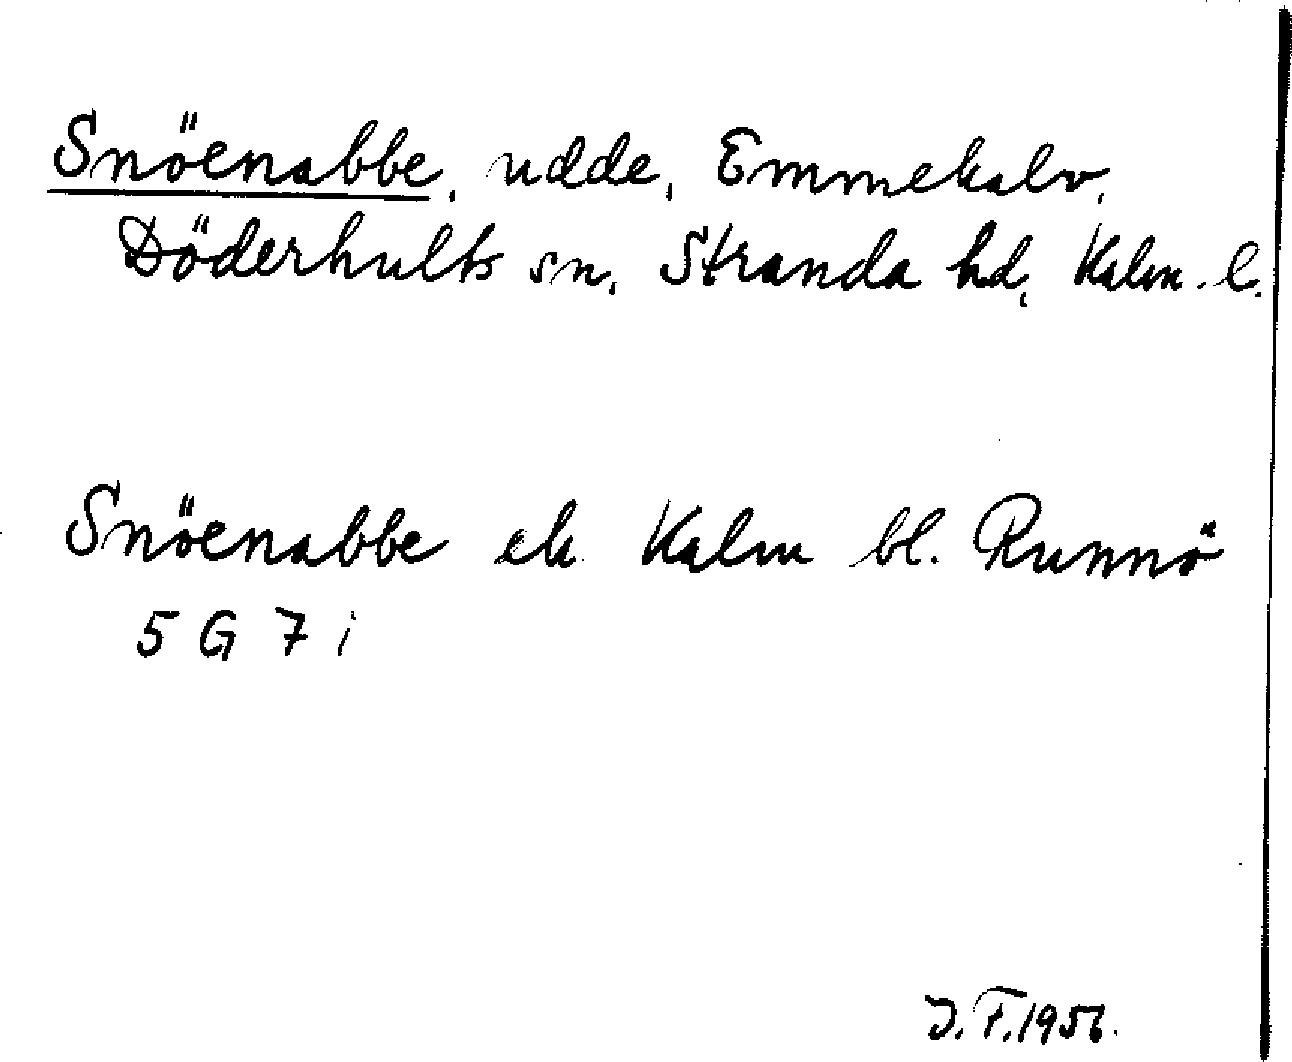 Snöenabbe, udde, Emmekalv,
Döderhults sn, Stranda hd, Kalm. l.
Snöenabbe ek Kalm bl. Runnö
5 G 7 i
J. F. 1956.